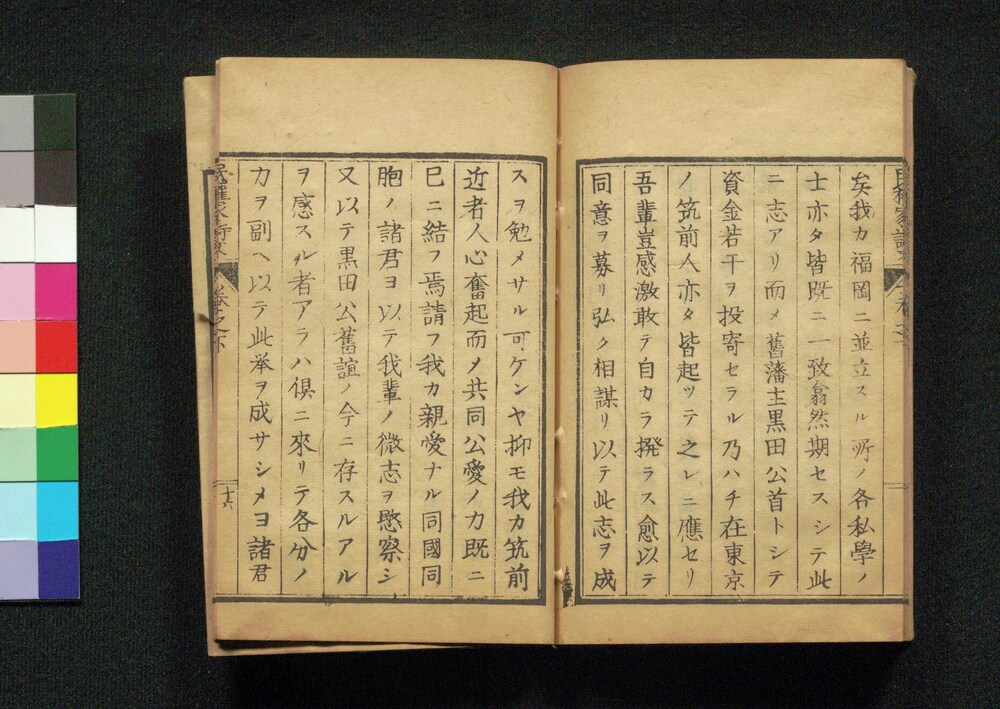 矣我カ福岡ニ並立スル所ノ各私學ノ
士亦タ皆既ニ一致翕然期セスシテ此
ニ志アリ而メ舊藩主黒田公首トシテ
資金若干ヲ投寄セラル乃ハチ在東京
ノ筑前人亦タ皆起ツテ之レニ應セリ
吾輩豈感激敢テ自カラ揆ラス愈以テ
同意ヲ募リ弘ク相謀リ以テ此志ヲ成
スヲ勉メサル可ケンヤ抑モ我カ筑前
近者人心奮起而メ共同公愛ノ力既ニ
已ニ結フ焉請フ我カ親愛ナル同國同
胞ノ諸君ヨ以テ我輩ノ微志ヲ愍察シ
又以テ黒田公舊誼ノ今ニ存スルアル
ヲ感スル者アラハ倶ニ來リテ各分ノ
力ヲ副ヘ以テ此挙ヲ成サシメヨ諸君
卷之下
十六